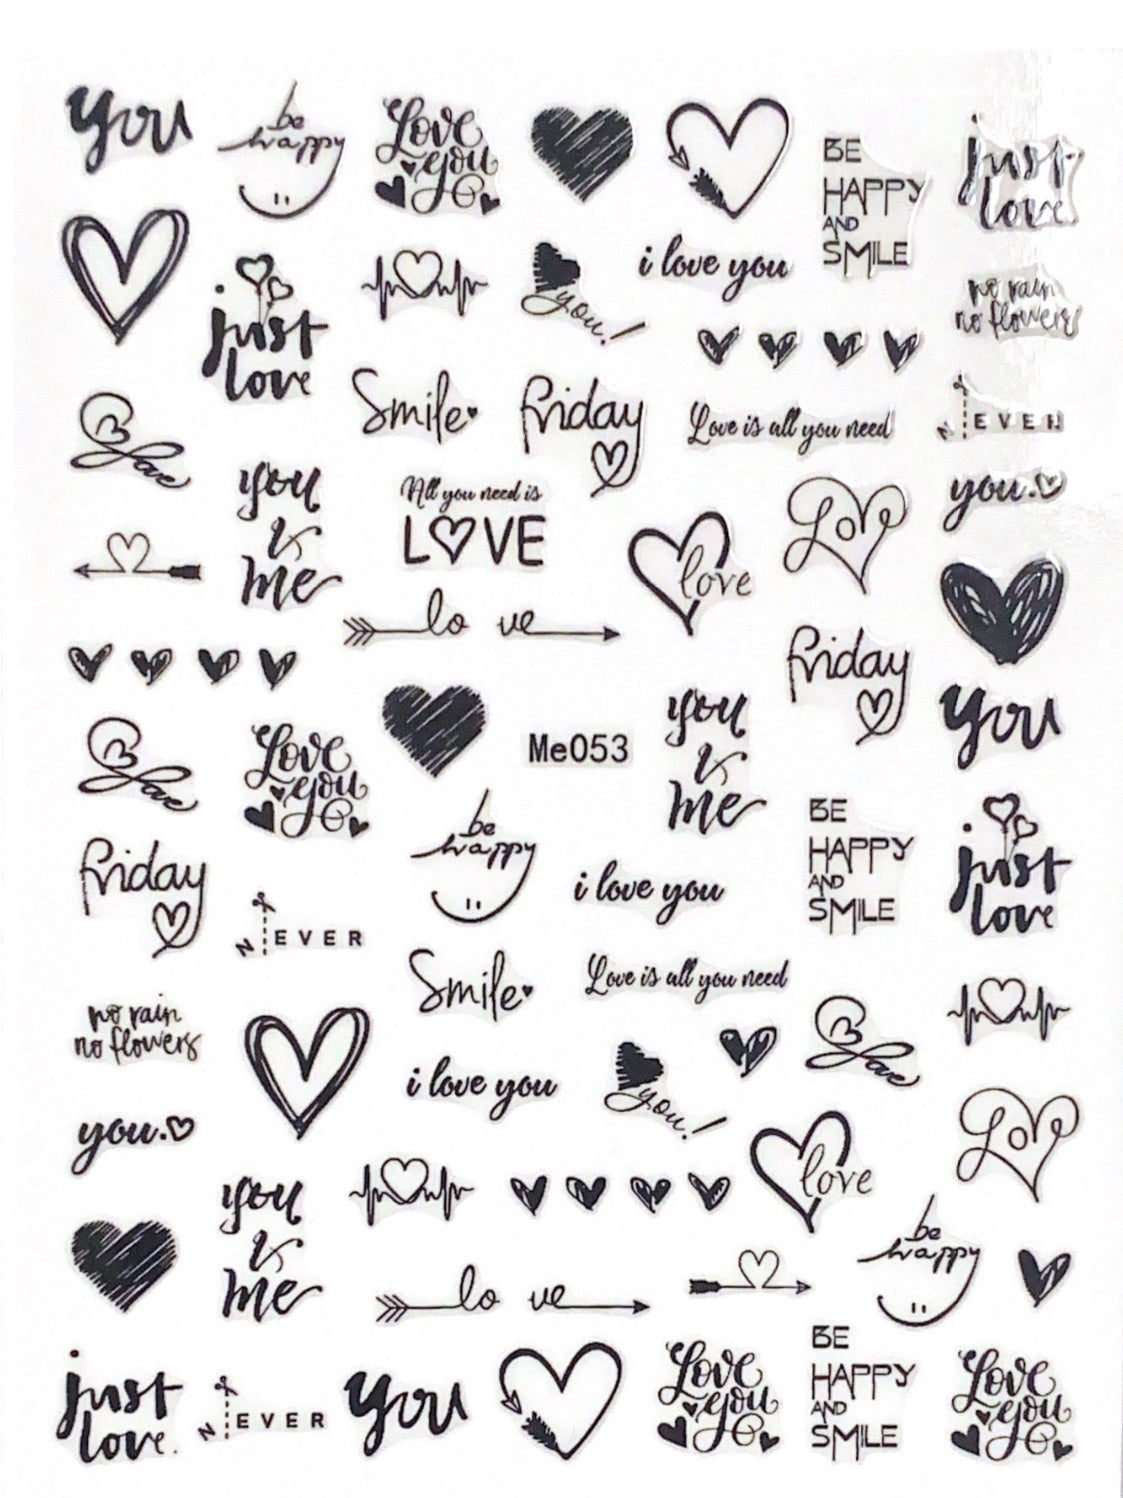 you
be
happy
Love
you
BE
HAPPY
AND
SMILE
just
love.
just
love
you!
i love you
no rain
no flowers
Smile
friday
Love is all you need
N EVER
love
you
&
me
All you need is
LOVE
love
Love
you.
lo ve
friday
you
love
Love
you
Me053
you
&
me
be
happy
BE
HAPPY
AND
SMILE
just
love
friday
N EVER
i love you
Smile
Love is all you need
no rain
no flowers
i love you
you!
love
you.
love
Love
you
&
me
be
happy
lo ve
just
love.
N EVER
you
Love
you
BE
HAPPY
AND
SMILE
Love
you